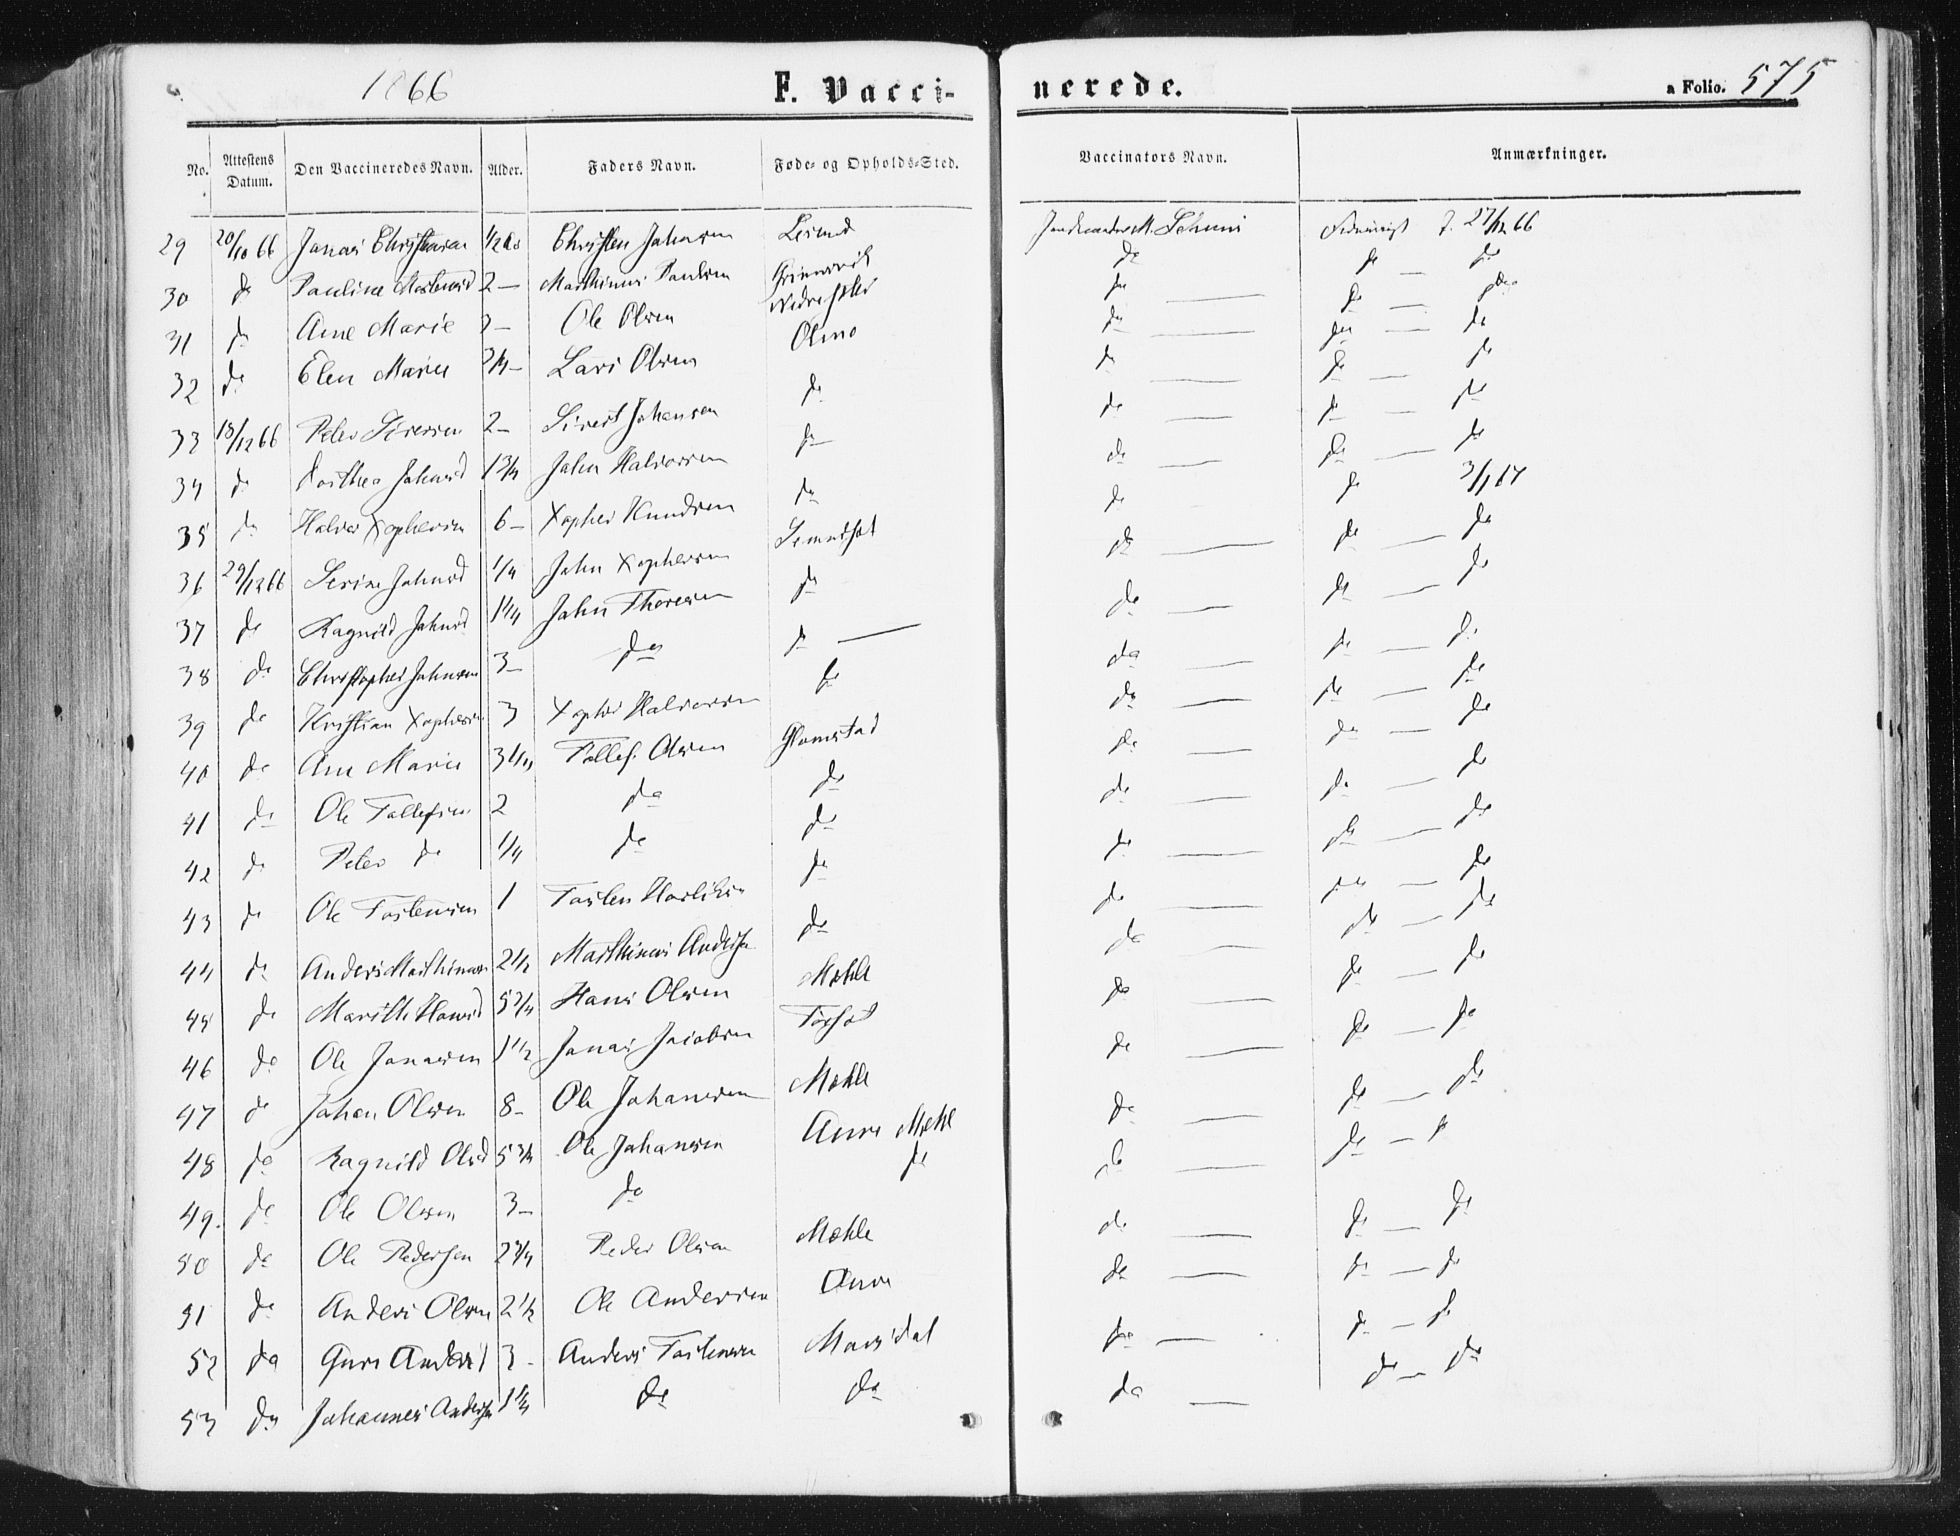 1866 F. Vacci- nerede. a Folio. 575
No. Attestens Datum. Den Vaccineredes Navn. Alder. Faders Navn. Føde- og Opholds-Sted. Vaccinators Navn. Anmærkninger.
29 20/10 66 Jonas Christensen 1/2 Christen Johnsen 27/12 66
30 do Pauline 2 — Marthinus Paulsen do do — do
31 do Ane Marie 3 — Ole Olsen do — do — do
32 do Elen Marie 3/4 — Lars Olsen Olmo do — do — do
33 18/12 66 Peder Siversen 2 — Sivert Johansen do do — do — do
34 do Dorthea Johnsd 1 3/4 John Halvorsen do do — do — do
35 do Halvor Xophersen 6 — Xopher Knudsen do do do 3/1 67
36 29/12 66 Serine Johnsd 1/4 John Xophersen do — do — do
37 do Ragnild Johnsd 1 1/4 John Thoresen do do — do — do
38 do Christopher Johnsen 3 — do do — do — do — do
39 do Kristian Xophersen 3 Xopher Halvorsen do do — do — do
40 do Ane Marie 3 1/4 Tollef Olsen Glomstad do — do — do
41 do Ole Tollefsen 2 do do do — do — do
42 do Peter do 1/4 do do do — do — do
43 do Ole Tostensen 1 Tosten do do — do — do
44 do Anders Marthinusen 2 1/2 Marthinus Andersen do do — do — do
45 do Marith Hansd 5 3/4 Hans Olsen Mehle do — do — do
46 do Ole Jonassen 1 1/2 Jonas Jacobsen do — do — do
47 do Johan Olsen 8 — Ole Johansen Mehle do — do — do
48 do Ragnild Olsd 5 3/4 Ole Johansen Aune Mehl do — do — do
49. do Ole Olsen 3 — do do do — do — do
50 do Ole Pedersen 2 3/4 Peder Olsen Mehle do — do — do
51 do Anders Olsen 2 1/2 Ole Andersen Aune do — do — do
52 do Guru Andersd 3 — Anders Tostensen do — do — do
53 do Johannes Andersen 1 1/4 do do do — do — do